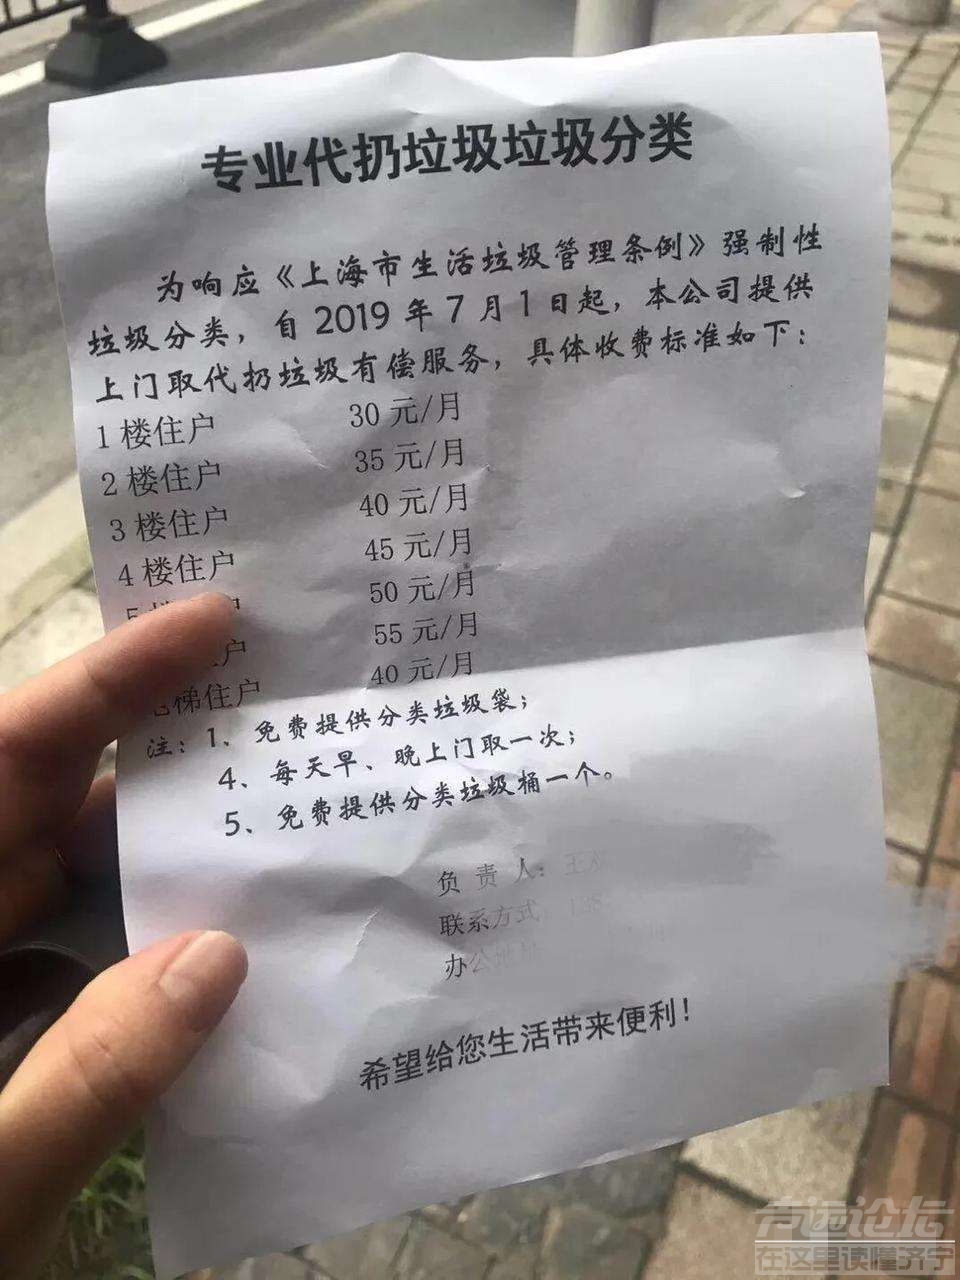 专业代扔垃圾垃圾分类
为响应《上海市生活垃圾管理条例》强制性
垃圾分类，自 2019 年 7 月 1 日起，本公司提供
上门取代扔垃圾有偿服务，具体收费标准如下：
1 楼住户 30 元/月
2 楼住户 35 元/月
3 楼住户 40 元/月
4 楼住户 45 元/月
50 元/月
55 元/月
梯住户 40 元/月
注：1、免费提供分类垃圾袋；
4、每天早、晚上门取一次；
5、免费提供分类垃圾桶一个。
负 责 人：王
联系方式
办公地
希望给您生活带来便利！
论坛
在这里读懂济宁